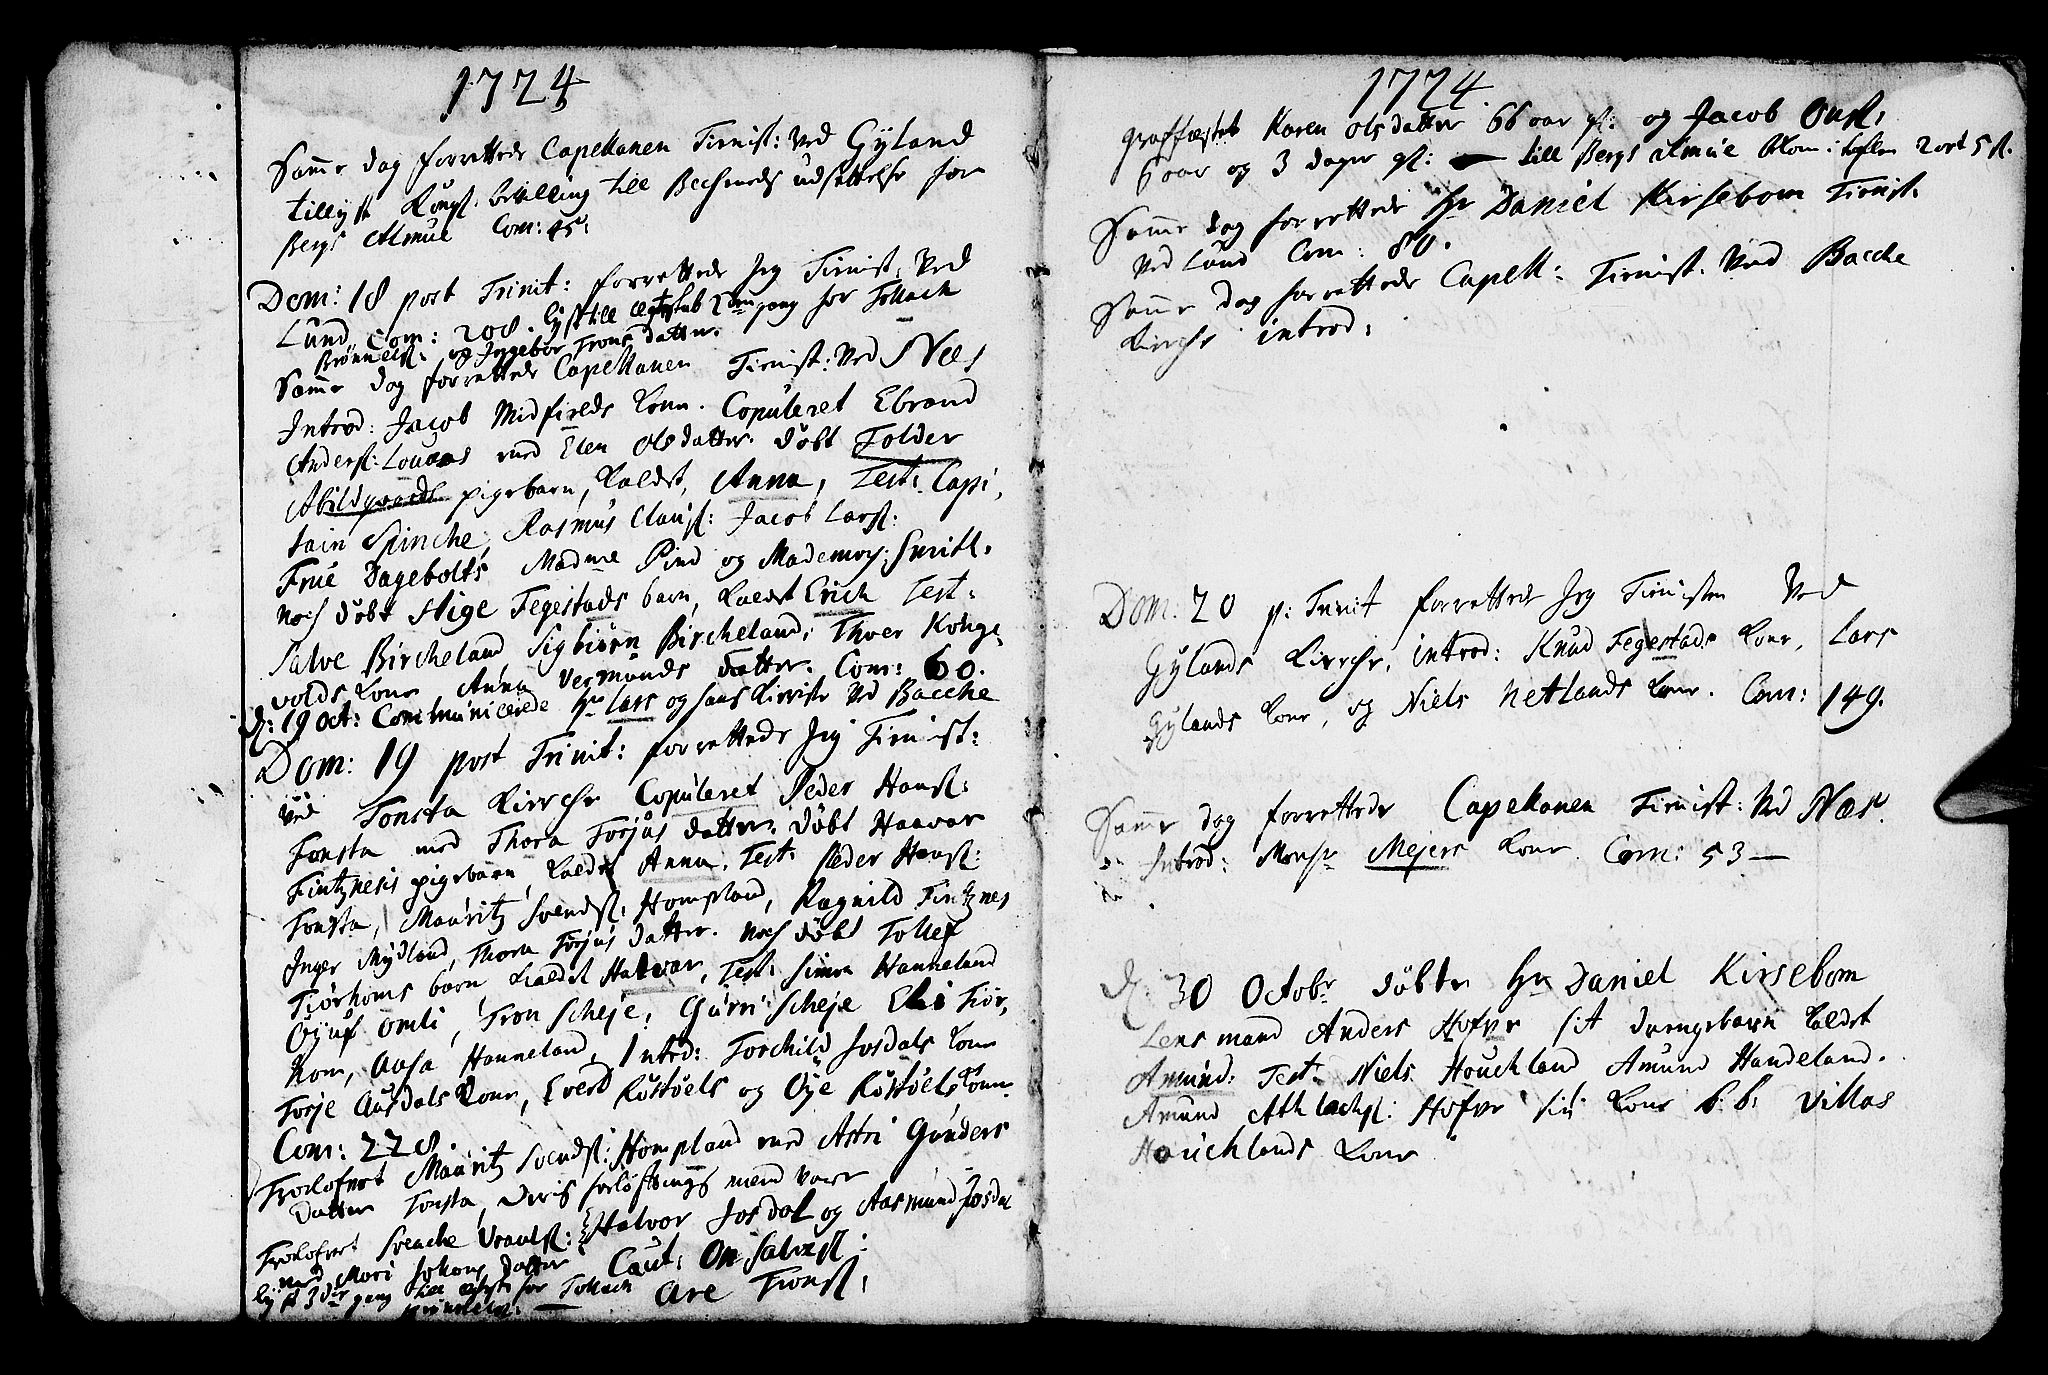 1724
Samme dag forrettede Capellanen Tienist: Ved Gyland
tillyst Kongl. bevilling till Bechneds udsettelse for
Bergs Almue Com: 45:
Dom: 18 post Trinit: forrettede Jeg Tienist: Ved
Lund, Com: 208. lyst till Egteskab 2den gang for Tollach
Brönnelß: og Ingebor Trons datter.
Samme dag forrettede Capellanen Tienist: Ved Næs
Introd: Jacob Midfields Kone. Copuleret Ebrand
Anderß: Louaas med Elen Olsdatter. döbt Tolder
Abildgaards pigebarn, kaldet, Anna, Test: Capi,
tain Spinche, Rasmus Clauß: Jacob Larß:
Frue Dagebolts Madme Pind og Mademoy: Smitt.
noch döbt Stige Fegestads barn, kaldet Erich Test:
Salve Bircheland, Sigbiörn Bircheland, Thoer Konge,
volds kone, Anna Vermunds datter. Com: 60.
d: 19 Oct: Communicerede Hr Lars og hans Kieriste Ved Bacche
Dom: 19 post Trinit: forrettede Jeg Tienist:
Ved Tonsta Kirche Copuleret Peder Hanß:
Tonsta med Thora Torjus datter. döbt Haavar
Fintznesis pigebarn, kaldet Anna. Test: Peder Hanß:
Tonsta, Mauritz Svendß: Hompland, Ragnild Fintznes
Inger Mydland, Thora Torjus datter. noch döbt Tollef
Tiörhoms barn kaldet Halvar, Test: Simon Hanneland
Öyuf Omli, Tron Scheje, Gurri Scheje Eli Tiör,
hom, Aasa Hanneland, Introd: Torchild Josdals kone
Torje Ausdals Kone, Everd Röstöels og Öye Röstöels kone.
Com: 228.
Trolofvet Mauritz Svendß: Hompland med Astri Gunders
Datter Tonsta, deris forlöftnings mend vare
Halvor Josdal og Aasmund Josdal
Trolofvet Sveche Vraalß:
med Mari Johans datter Caut: On Salveß:
lyst 3die gang till Egtesk: for Tollach Are Tronß:
Brönnelß:
1724
graffæstet Karen Olsdatter 66 aar gl: og Jacob Onsß:
6 aar og 3 dager gl: till Bergs Almue kom i taflen 2 ort 5 ß.
Samme dag forrettede Hr Daniel Kirsebom Tienist.
Ved Lund Com: 80.
Samme dag forrettede Capell: Tienist. Ved Bacche
Kirche introd:
Dom: 20 p: Trinit forrettede Jeg Tienisten Ved
Gylands Kirche. introd: Knud Fegestads kone, Lars
Gylands kone, og Niels Netlands kone. Com: 149.
Samme dag forrettede Capellanen Tienist: Ved Næs.
Introd: Monsr Mejers kone. Com: 53
d: 30 Octobr döbte Hr Daniel Kirsebom
Lensmand Anders Hofve sit drengebarn kaldet
Amund: Test: Niels Houchland Amund Handeland.
Amund Athlachß: Hofve Siri kone b. b. Villas
Houchlands kone